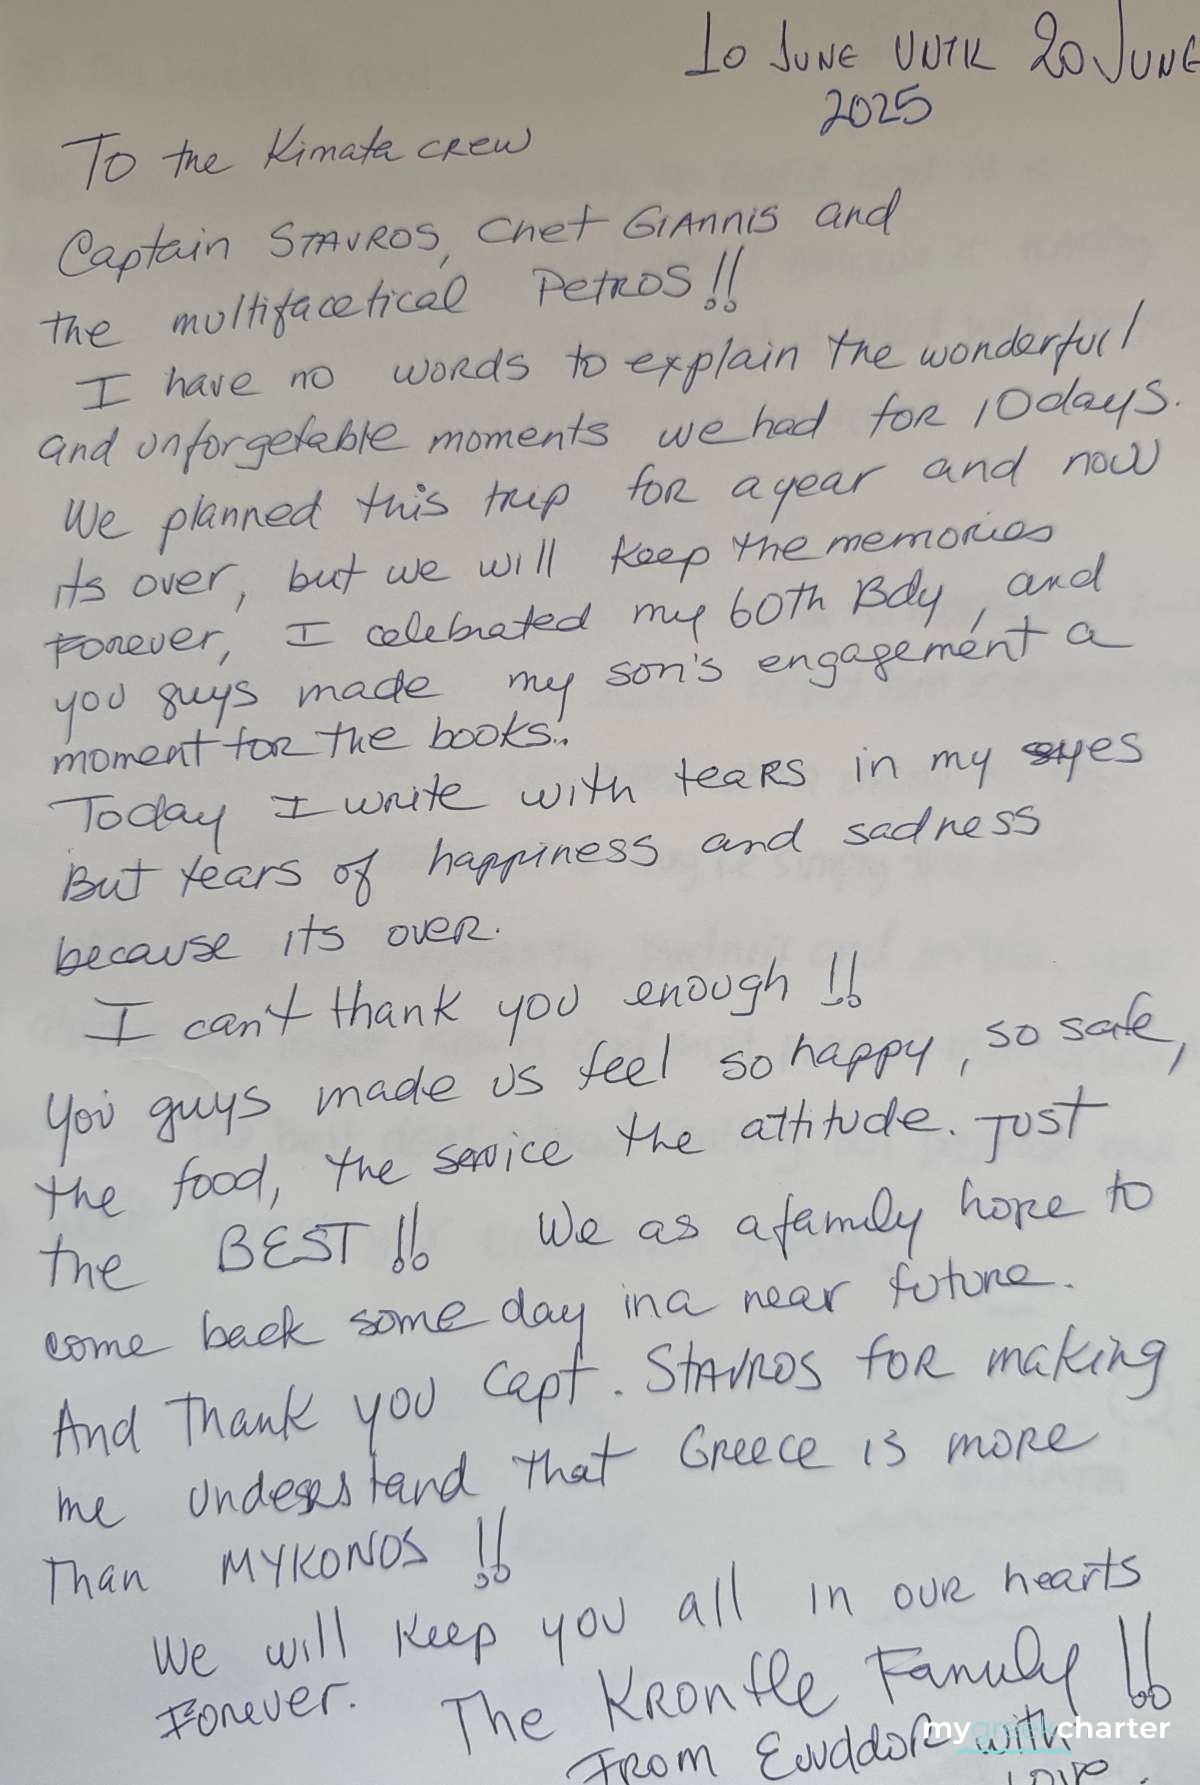 10 JUNE UNTIL 20 JUNE
2025
To the Kimata crew
Captain STAVROS, Chef GIANNIS and
the multifacetical PETROS!!
I have no words to explain the wonderful
and unforgetable moments we had for 10 days.
We planned this trip for a year and now
its over, but we will keep the memories
Forever, I celebrated my 60th Bdy, and
you guys made my son's engagement a
moment for the books..
Today I write with tears in my eyes
But tears of happiness and sadness
because its over.
I can't thank you enough!!
You guys made us feel so happy, so safe,
the food, the service the attitude. Just
the BEST!! We as a family hope to
come back some day in a near future.
And Thank you Capt. STAVROS for making
me understand that Greece is more
Than MYKONOS!!
We will keep you all in our hearts
Forever. The Family!!
From with
love.
mygreekcharter